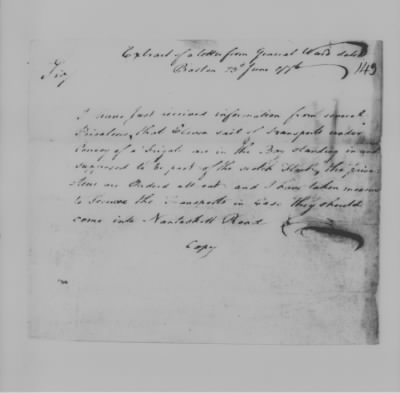 Extract of a letter from General Ward dated
Boston 23d June 1776
143
Sir
I have just received information from several
Privateers, that Eleven sail of Transports under
Convoy of a Frigate are in the Bay standing in and
supposed to be part of the Scotch Fleet, the priva
teers are Ordered all out and I have taken measures
to secure the Transports in Case they should
come into Nantaskett Road
Copy